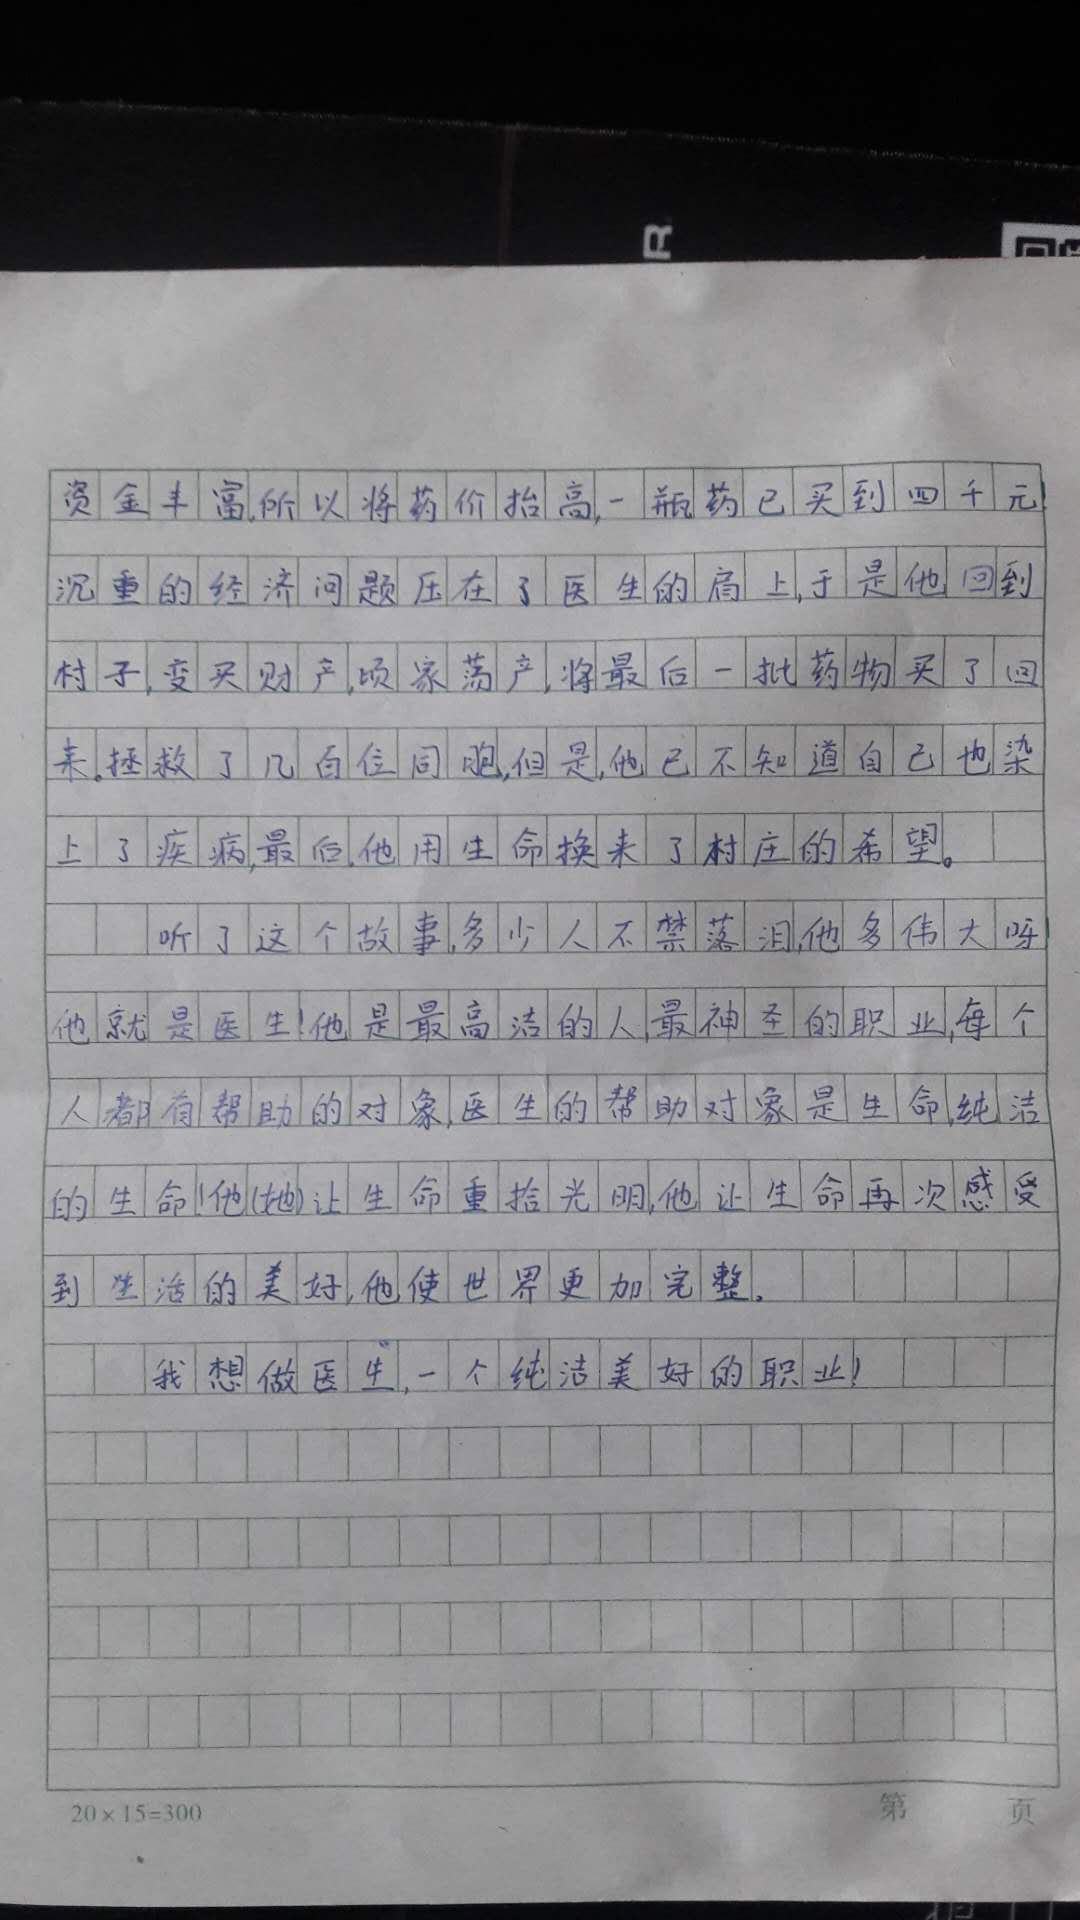 R
资金丰富,所以将药价抬高,一瓶药已买到四千元
沉重的经济问题压在了医生的肩上,于是他回到
村子,变买财产,顷家荡产,将最后一批药物买了回
来。拯救了几百位同胞,但是,他已不知道自己也染
上了疾病,最后,他用生命换来了村庄的希望。
听了这个故事,多少人不禁落泪,他多伟大呀
他就是医生!他是最高洁的人,最神圣的职业,每个
人都有帮助的对象,医生的帮助对象是生命,纯洁
的生命!他(她)让生命重拾光明,他让生命再次感受
到生活的美好,他使世界更加完整。
我想做医生,一个纯洁美好的职业!
20×15=300
第 页